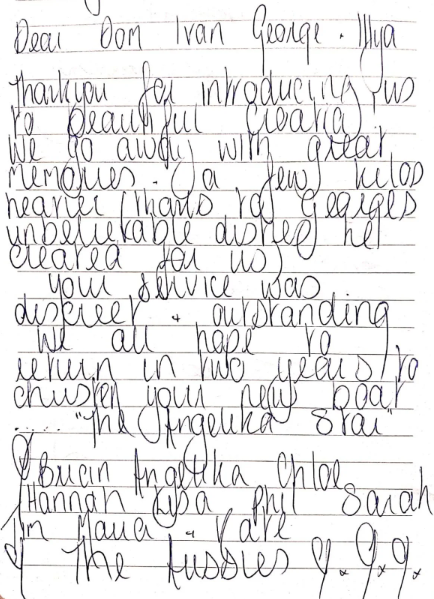 Dear Dom Ivan George. Illya
Thankyou for introducing us
to beautiful Croatia
We go away with great
memories. (a few kilos
heavier (thanks to Georges
unbelievable dishes he
created for us)
Your service was
discreet + outstanding
We all hope to
return in two years to
christen your new boat
..... "The Angelika Star"
Angelika Chloe
Hannah Lisa Phil Sarah
Jim Maria + Kate
The Aussies